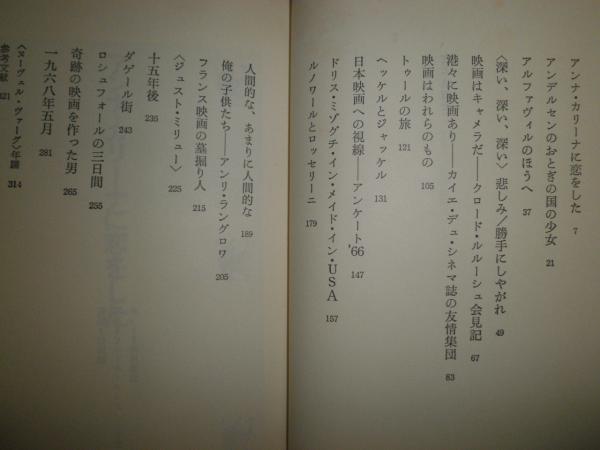 アンナ・カリーナに恋をした 7
アンデルセンのおとぎの国の少女 21
アルファヴィルのほうへ 37
〈深い、深い、深い〉悲しみ／勝手にしやがれ 49
映画はキャメラだ――クロード・ルルーシュ会見記 67
港々に映画あり――カイエ・デュ・シネマ誌の友情集団 83
映画はわれらのもの 105
トゥールの旅 121
ヘッケルとジャッケル 131
日本映画への視線――アンケート'66 147
ドリス・ミゾグチ・イン・メイド・イン・USA 157
ルノワールとロッセリーニ 179
人間的な、あまりに人間的な 189
俺の子供たち――アンリ・ラングロワ 205
フランス映画の墓掘り人 215
〈ジュスト・ミリュー〉 225
十五年後 235
ダゲール街 243
ロシュフォールの三日間 255
奇跡の映画を作った男 265
一九六八年五月 281
〈ヌーヴェル・ヴァーグ〉年譜 314
参考文献 321